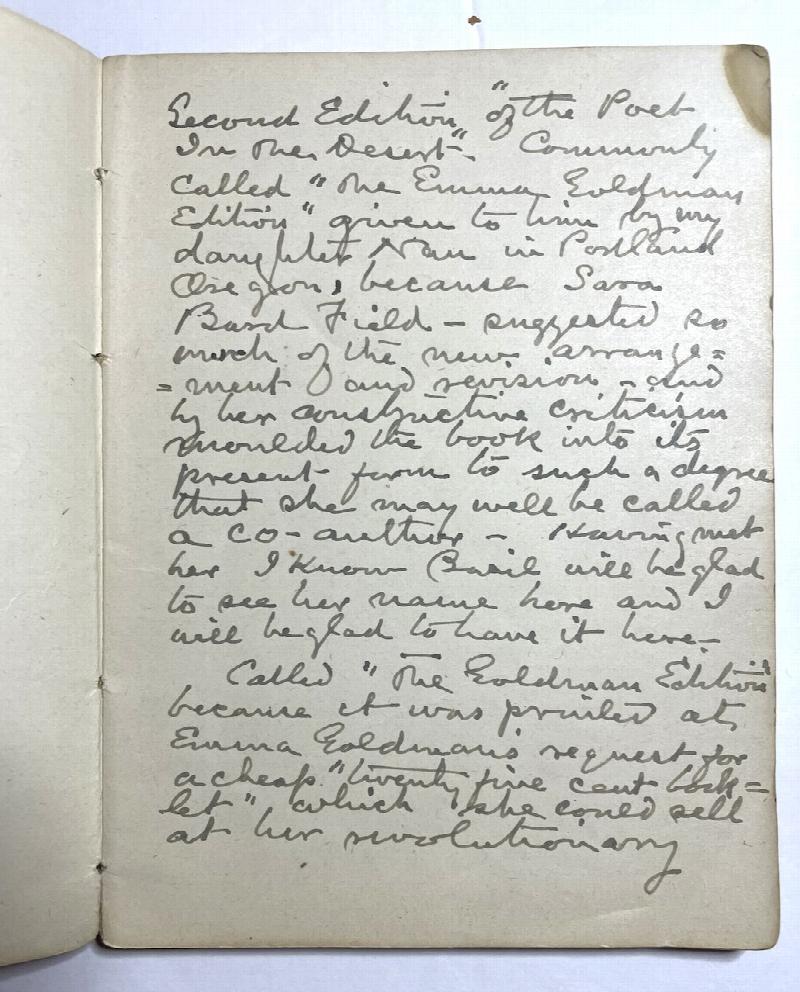 Second Edition "of the Poet
In the Desert". Commonly
called "The Emma Goldman
Edition" given to him by my
daughter Nan in Portland
Oregon, because Sara
Bard Field - suggested so
much of the new arrange=
=ment and revision - and
by her constructive criticism
moulded the book into its
present form to such a degree
that she may well be called
a co-author - Having met
her I know Basil will be glad
to see her name here and I
will be glad to have it here -
Called "The Goldman Edition"
because it was printed at
Emma Goldman's request for
a cheap "twenty five cent book=
let" which she could sell
at her revolutionary